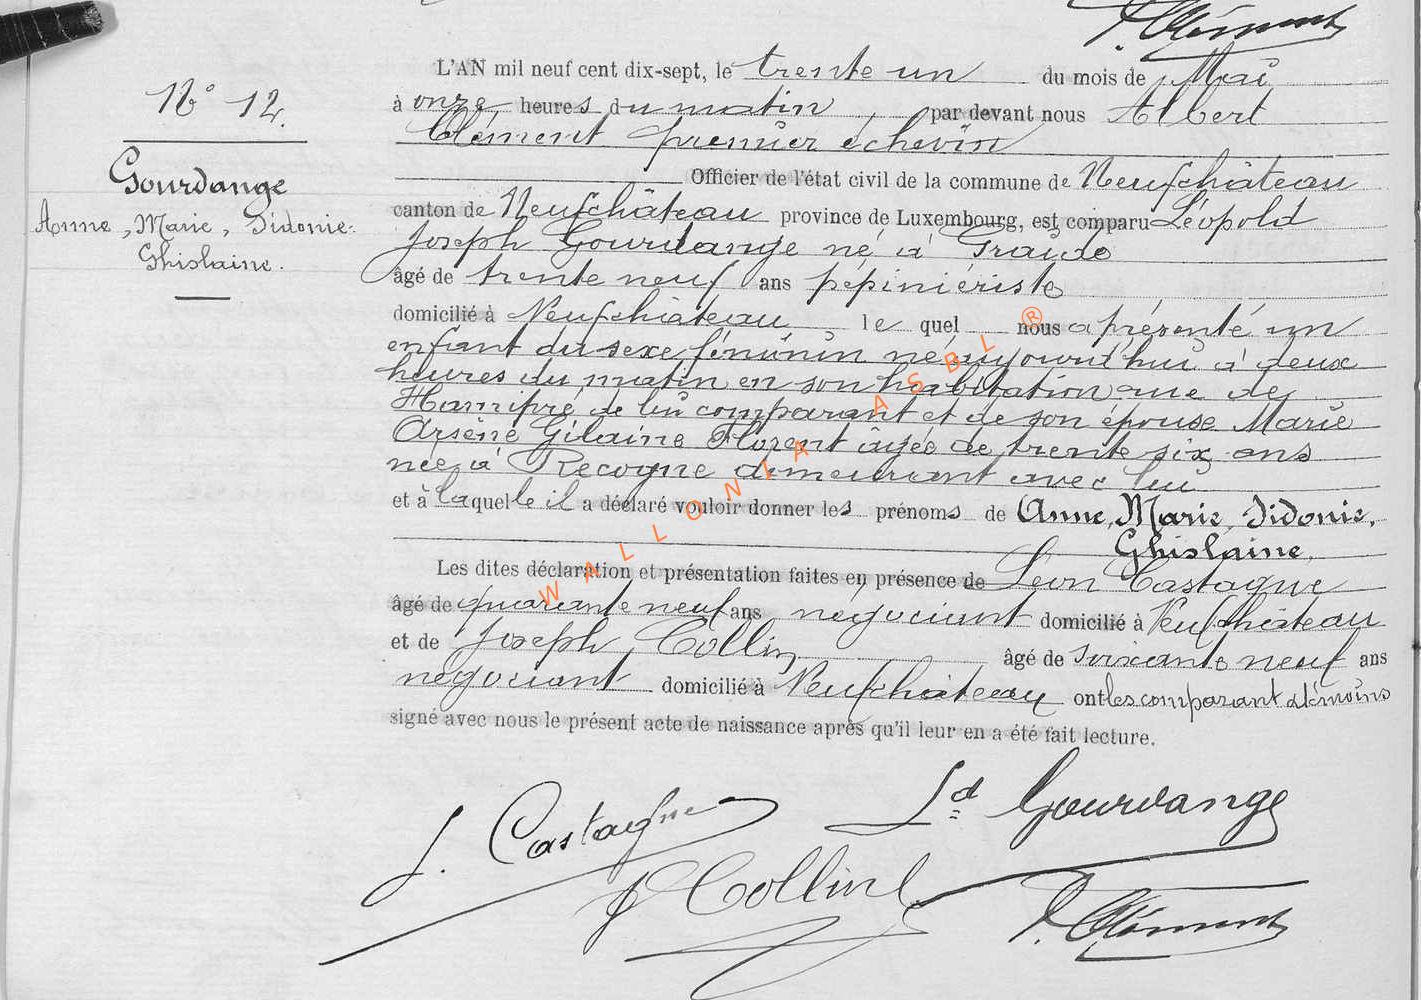 N° 12.
Gourdange
Anne, Marie, Sidonie.
Ghislaine.
L'AN mil neuf cent dix-sept, le trente un du mois de Mai
à onze heures du matin par devant nous Albert
Clément premier échevin
Officier de l'état civil de la commune de Neufchâteau
canton de Neufchâteau province de Luxembourg, est comparu Léopold
Joseph Gourdange né à Graide
âgé de trente neuf ans pépiniériste
domicilié à Neufchâteau le quel nous a présenté un
enfant du sexe féminin né aujourd'hui à deux
heures du matin en son habitation rue de
Hamipré de lui comparant et de son épouse Marie
Arsène Gilaine Florent âgée de trente six ans
née à Recogne demeurant avec lui
et à laquelle il a déclaré vouloir donner les prénoms de Anne, Marie, Sidonie,
Ghislaine.
Les dites déclaration et présentation faites en présence de Léon Castagne
âgé de quarante neuf ans négociant domicilié à Neufchâteau
et de Joseph Collin âgé de soixante neuf ans
négociant domicilié à Neufchâteau ont les comparant et témoins
signé avec nous le présent acte de naissance après qu'il leur en a été fait lecture.
Castagne
Ld Gourdange
Collin
Clément
WALLONIA ASBL ®